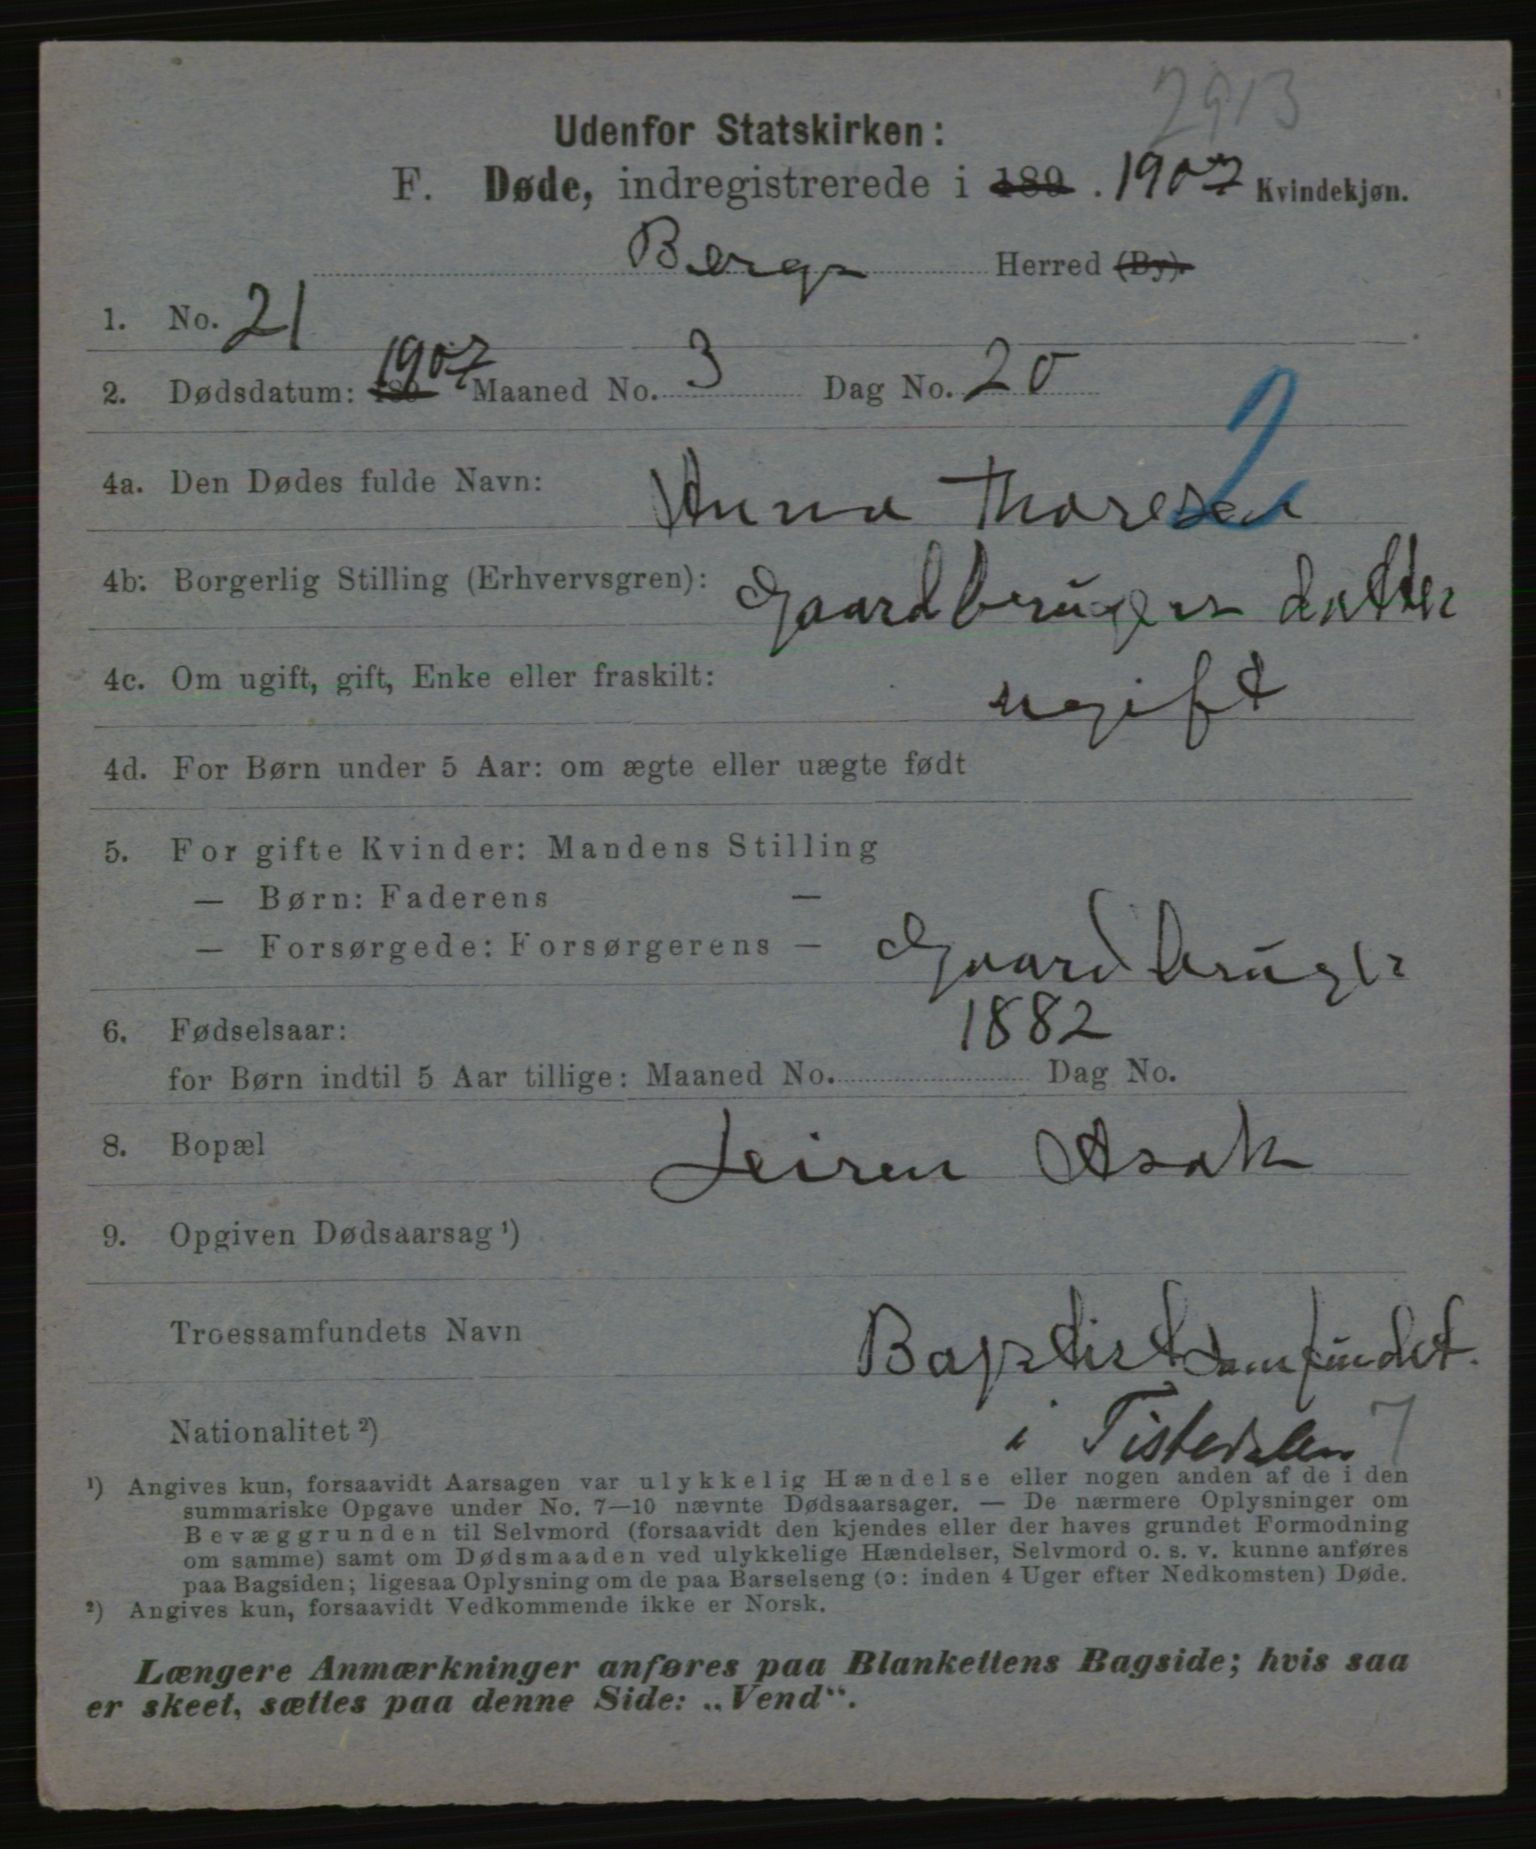 2913
Udenfor Statskirken:
F. Døde, indregistrerede i 189 . 1907 Kvindekjøn.
Berg Herred (By).
1. No. 21
2. Dødsdatum: 189 1907 Maaned No. 3 Dag No. 20
2
4a. Den Dødes fulde Navn: Anna Thoresen
4b. Borgerlig Stilling (Erhvervsgren): Gaardbrugers datter
4c. Om ugift, gift, Enke eller fraskilt: ugift
4d. For Børn under 5 Aar: om ægte eller uægte født
5. For gifte Kvinder: Mandens Stilling
— Børn: Faderens —
— Forsørgede: Forsørgerens — Gaardbruger
6. Fødselsaar: 1882
for Børn indtil 5 Aar tillige: Maaned No. Dag No.
8. Bopæl Leiren Asak
9. Opgiven Dødsaarsag ¹)
Troessamfundets Navn Baptistsamfundet.
Nationalitet ²) i Tistedalen 7
¹) Angives kun, forsaavidt Aarsagen var ulykkelig Hændelse eller nogen anden af de i den
summariske Opgave under No. 7—10 nævnte Dødsaarsager. — De nærmere Oplysninger om
Bevæggrunden til Selvmord (forsaavidt den kjendes eller der haves grundet Formodning
om samme) samt om Dødsmaaden ved ulykkelige Hændelser, Selvmord o. s. v. kunne anføres
paa Bagsiden; ligesaa Oplysning om de paa Barselseng (ɔ: inden 4 Uger efter Nedkomsten) Døde.
²) Angives kun, forsaavidt Vedkommende ikke er Norsk.
Længere Anmærkninger anføres paa Blankettens Bagside; hvis saa
er skeet, sættes paa denne Side: „Vend“.